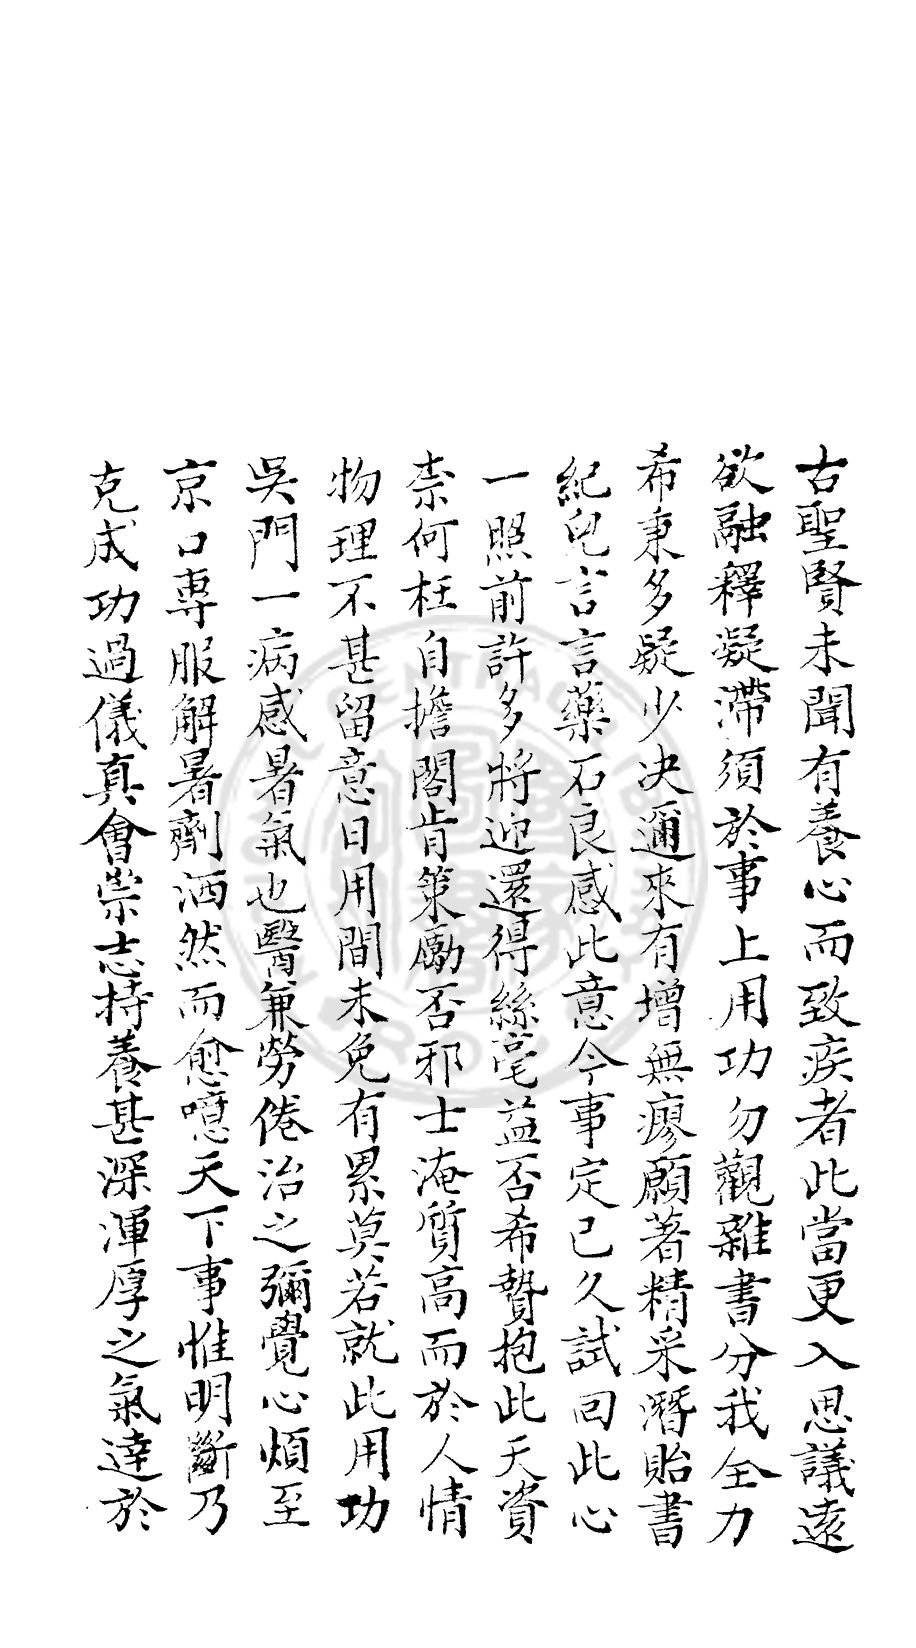 古聖賢未聞有養心而致疾者此當更入思議遠
欲融釋凝滯須於事上用功勿觀雜書分我全力
希秉多疑少决邇來有增無瘳願著精采潛貽書
紀兒言言藥石良感此意今事定已久試回此心
一照前許多將迎還得絲毫益否希贄抱此天資
柰何枉自擔閣肯策勵否邪士淹質高而於人情
物理不甚留意日用間未免有累莫若就此用功
吳門一病感暑氣也醫兼勞倦治之彌覺心煩至
京口專服解暑劑洒然而愈噫天下事惟明斷乃
克成功過儀真會崇志持養甚深渾厚之氣達於